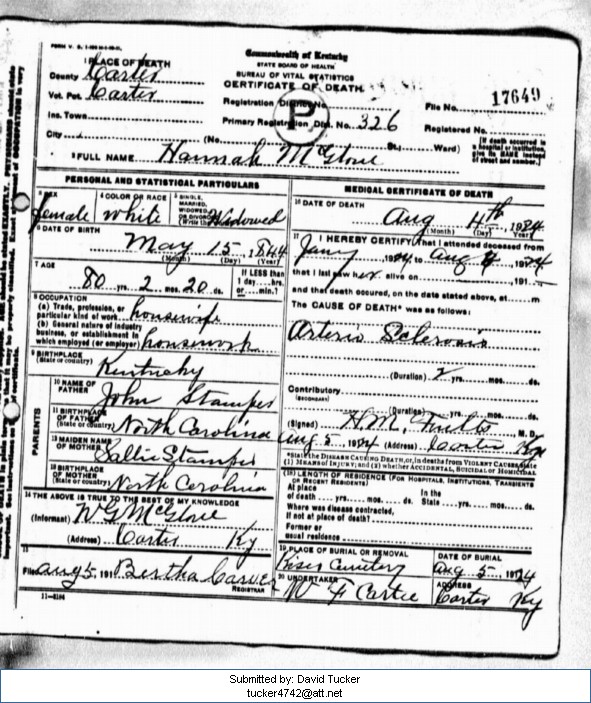 Commonwealth of Kentucky
STATE BOARD OF HEALTH
BUREAU OF VITAL STATISTICS
CERTIFICATE OF DEATH
1 PLACE OF DEATH
County Carter
Vot. Pct. Carter
Inc. Town
City (No. St.; Ward)
Registration District No.
Primary Registration Dist. No. 326
P
File No. 17649
Registered No.
[If death occurred in a hospital or institution, give its NAME instead of street and number.]
2 FULL NAME Hannah McGlone
PERSONAL AND STATISTICAL PARTICULARS
3 SEX female
4 COLOR OR RACE white
5 SINGLE, MARRIED, WIDOWED, OR DIVORCED (Write the word) Widowed
6 DATE OF BIRTH May 15, 1844
(Month) (Day) (Year)
7 AGE 80 yrs. 2 mos. 20 ds.
If LESS than 1 day....hrs. or....min.?
8 OCCUPATION
(a) Trade, profession, or particular kind of work housewife
(b) General nature of industry business, or establishment in which employed (or employer) housework
9 BIRTHPLACE (State or country) Kentucky
PARENTS
10 NAME OF FATHER John Stamper
11 BIRTHPLACE OF FATHER (State or country) North Carolina
12 MAIDEN NAME OF MOTHER Sallie Stamper
13 BIRTHPLACE OF MOTHER (State or country) North Carolina
14 THE ABOVE IS TRUE TO THE BEST OF MY KNOWLEDGE
(Informant) W G McGlone
(Address) Carter Ky
15
Filed Aug 5, 191 Bertha Carver
REGISTRAR
11-3184
MEDICAL CERTIFICATE OF DEATH
16 DATE OF DEATH Aug 4th, 1924
(Month) (Day) Year
17 I HEREBY CERTIFY, that I attended deceased from
Jany, 1924, to Aug 4, 1924
that I last saw her alive on 191
and that death occured, on the date stated above, at m
The CAUSE OF DEATH* was as follows:
Arterio Sclerosis
(Duration) 2 yrs. mos. ds.
Contributory
(SECONDARY)
(Duration) yrs. mos. ds.
(Signed) H.M. Fultz, M.D.
Aug 5, 1924 (Address) Carter Ky
*State the DISEASE CAUSING DEATH, or, in deaths from VIOLENT CAUSES, state (1) MEANS OF INJURY; and (2) whether ACCIDENTAL, SUICIDAL or HOMICIDAL
18 LENGTH OF RESIDENCE (FOR HOSPITALS, INSTITUTIONS, TRANSIENTS OR RECENT RESIDENTS)
At place of death yrs. mos. ds. In the State yrs. mos. ds.
Where was disease contracted, if not at place of death?
Former or usual residence
19 PLACE OF BURIAL OR REMOVAL Cemetery
DATE OF BURIAL Aug 5, 1924
20 UNDERTAKER W F Cartee
ADDRESS Carter Ky
Submitted by: David Tucker
tucker4742@att.net